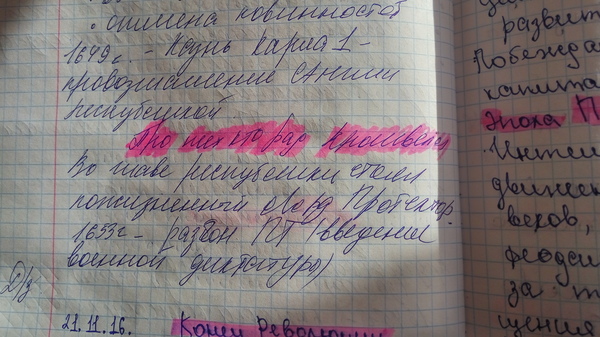 . отмена повинностей
1649г. – Казнь Карла 1 –
провозглашение Англии
республикой.
Протекторат Кромвеля
Во главе республики стоял
пожизненный лорд Протектор.
1653г – разгон РП (введение
военной диктатуры)
Д/з
21.11.16. Конец Революции
развит
Побежда
капита
Эпоха П
Интел
движен
веков,
феода
за т
щения